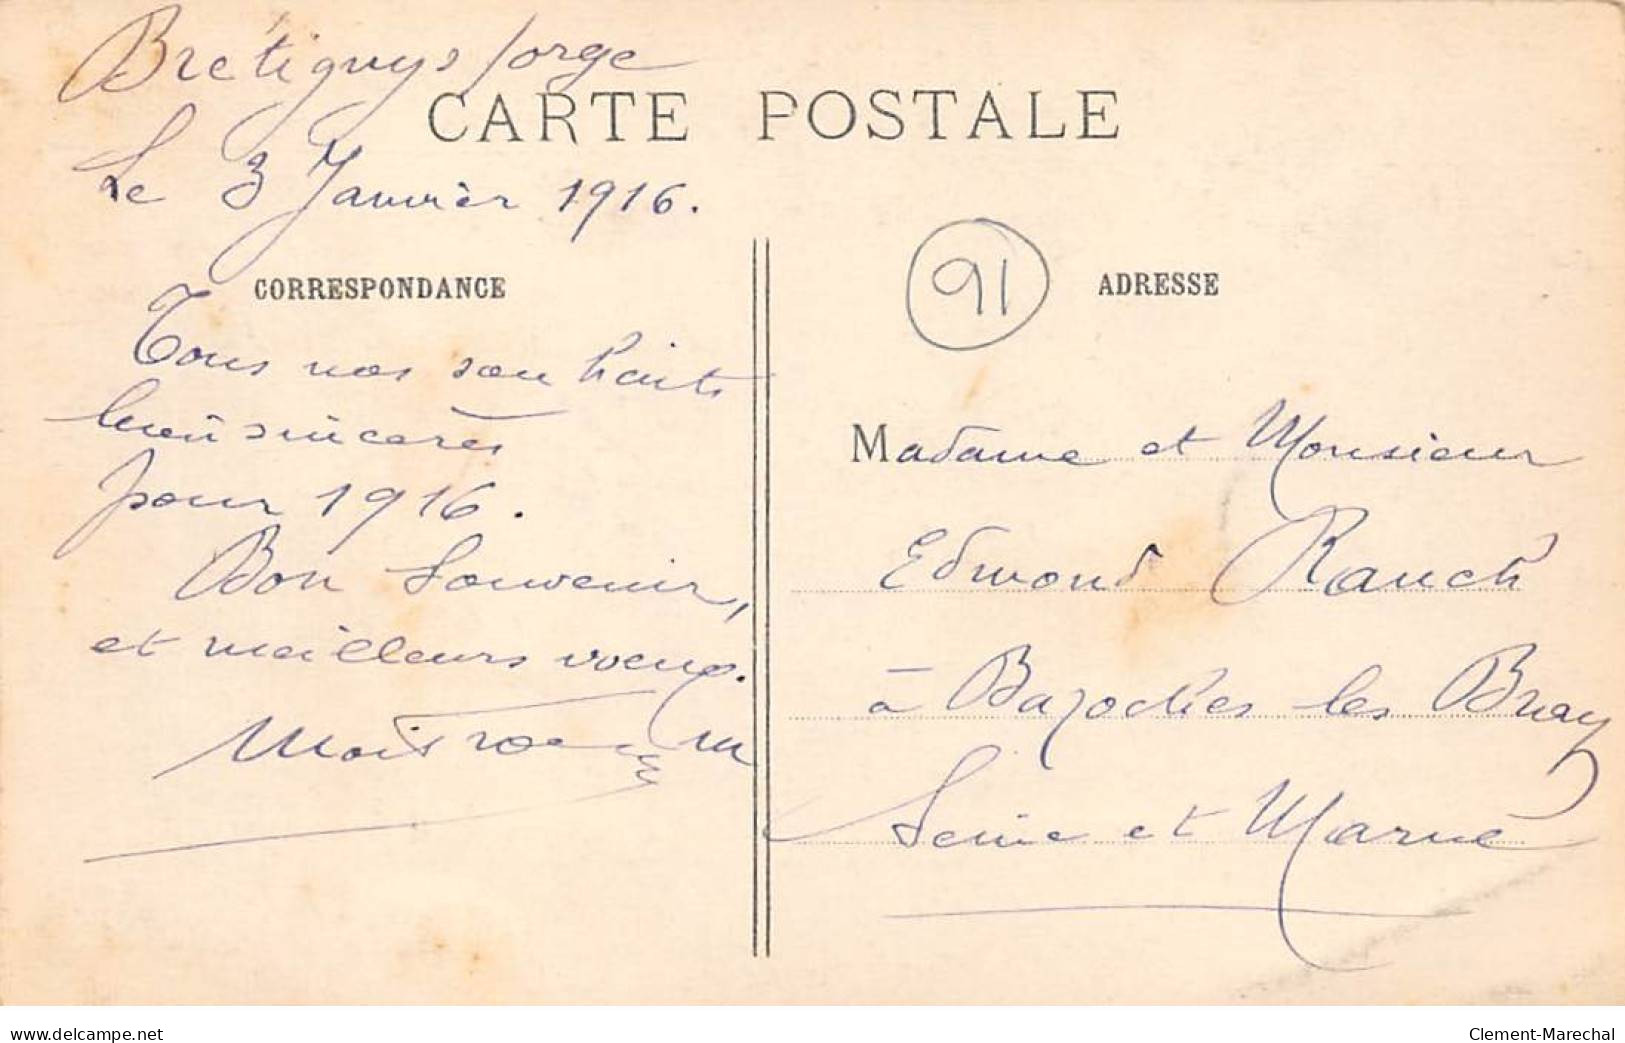 Brétigny s/orge
CARTE POSTALE
Le 3 Janvier 1916.
CORRESPONDANCE
Tous nos souhaits
bien sincères
pour 1916.
Bon Souvenir,
et meilleurs voeux.
91
ADRESSE
Madame et Monsieur
Edmond Rauch
à Bazoches les Bray
Seine et Marne
www.delcampe.net
Clement-Marechal